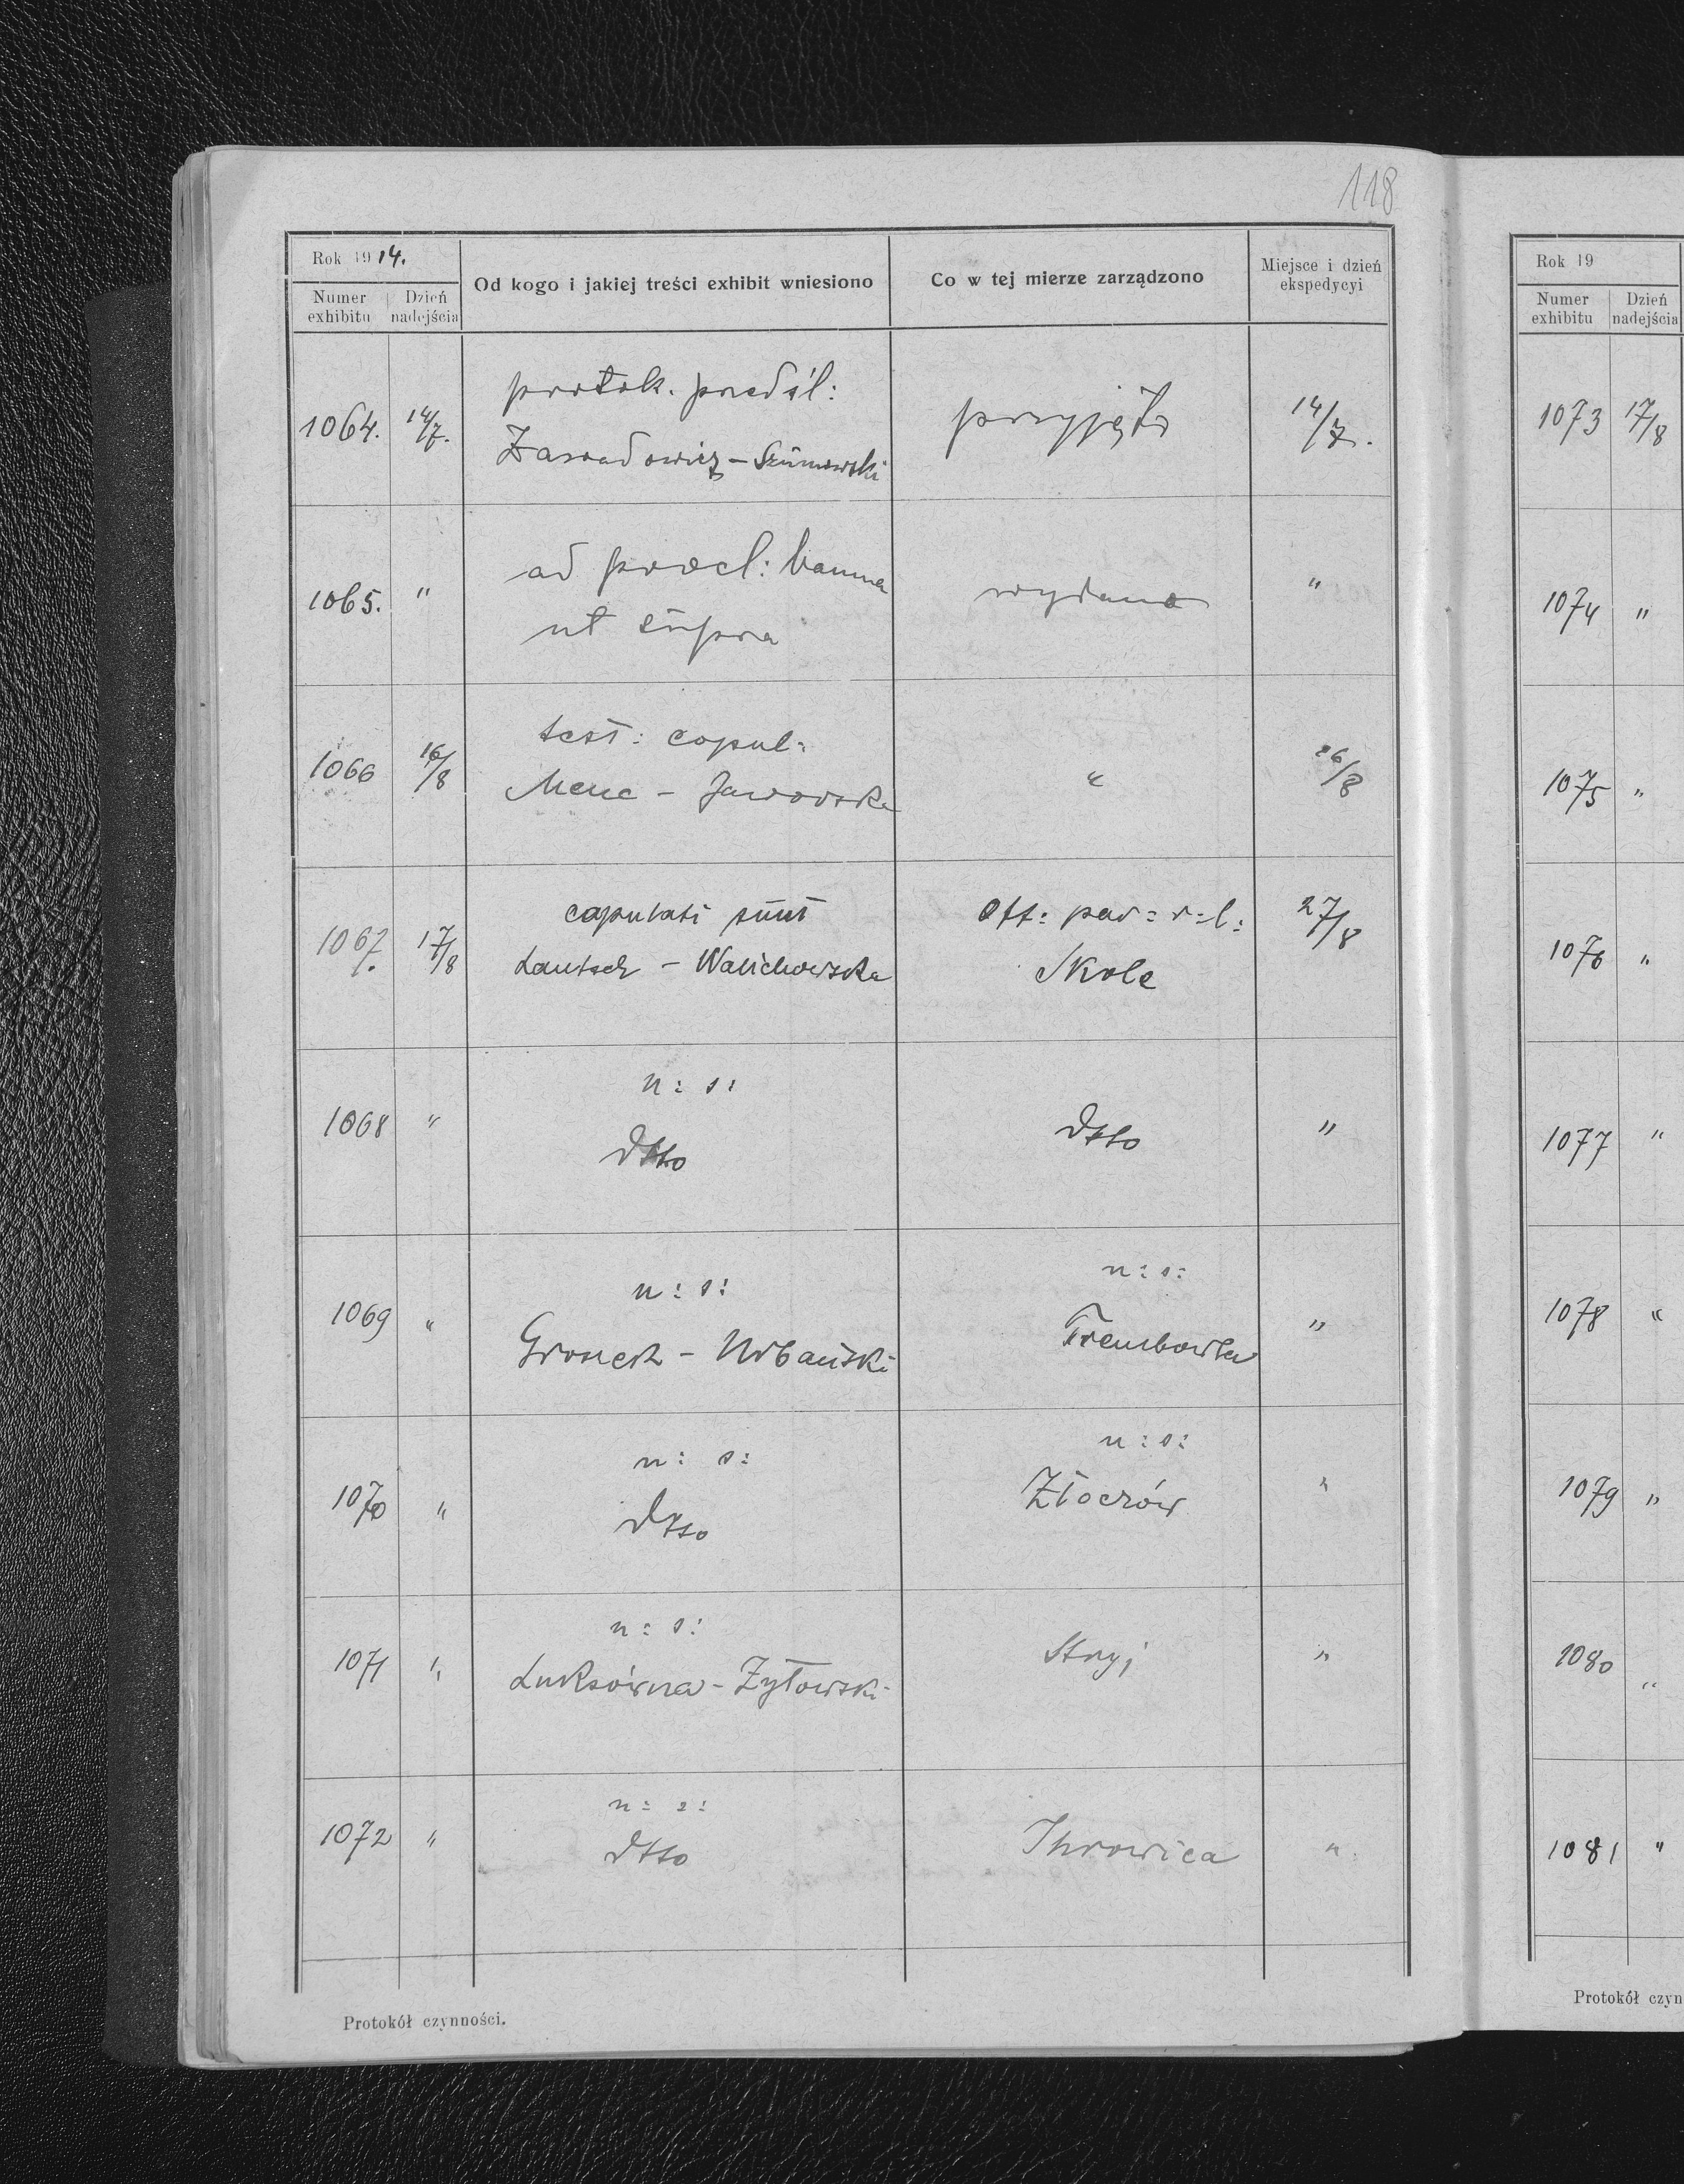 118
Rok 1914.
Numer exhibitu
Dzień nadejścia
Od kogo i jakiej treści exhibit wniesiono
Co w tej mierze zarządzono
Miejsce i dzień ekspedycyi
1064. 14/7. protok. przedśl: przyjęto 14/7.
Zawadowicz - Szumowski
1065. " ad procl: banna wydano "
ut supra
1066 16/8 test: copul: " 26/8
Menc - Jaworska
1067. 17/8 copulati sunt Off: par: r: l: 27/8
Lautsch - Walichowska Skole
1068 " n: s:
dtto dtto "
1069 " n: s: n: s: "
Gronek - Urbański Trembowla
1070 " n: s: n: s: "
dtto Złoczów
1071 " n: s: Stryj "
Luksówna - Żyłowski
1072 " n: s: Ihrowica "
dtto
Protokół czynności.
Rok 19
Numer exhibitu
Dzień nadejścia
1073 17/8
1074 "
1075 "
1076 "
1077 "
1078 "
1079 "
1080 "
1081 "
Protokół czyn